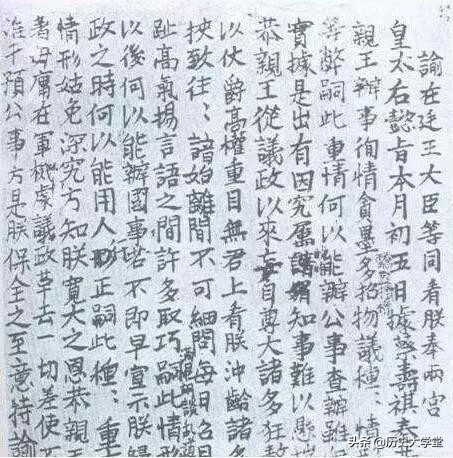 諭在廷王大臣等同看朕奉兩宮
皇太后懿旨本月初五日據蔡壽祺奏
親王辦事徇情貪墨多招物議種:情
等弊嗣此重情何以能辦公事查辦雖
實據是出有因究屬知事難以懸
恭親王從議政以來妄自尊大諸多狂
以仗爵高權重目無君上看朕沖齡諸
挾致往:諳始離間不可細問每日召見
趾高氣揚言語之間許多取巧嗣此情形
以後何以能辦國事若不即早宣示朕歸
政之時何以能用人行正嗣此種:重
情形姑免深究方知朕寬大之恩恭親王
著毋庸在軍機處議政革去一切差使不
准干預公事方是朕保全之至意特諭
头条 @历史大学堂